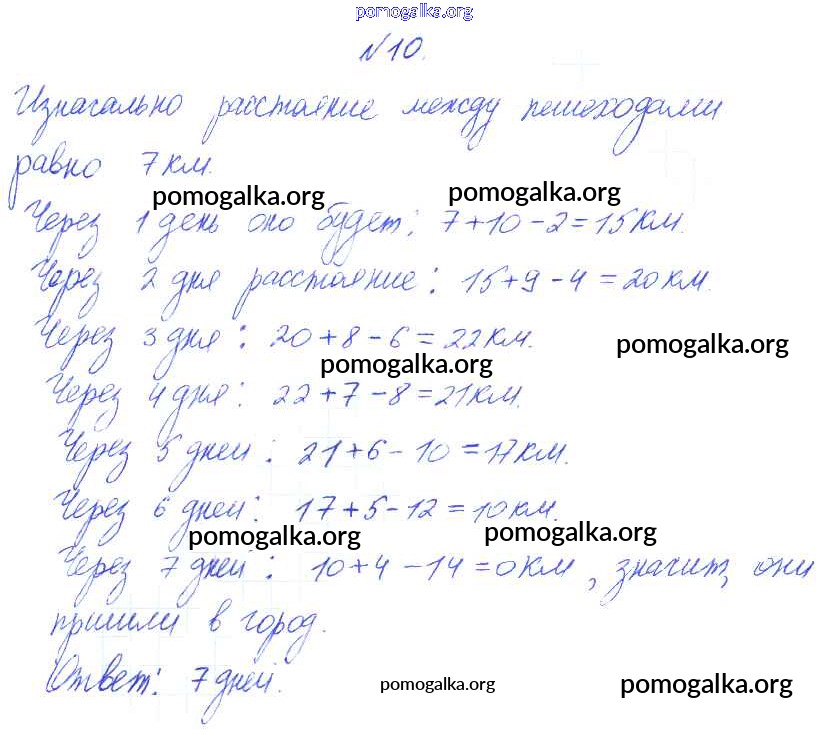 pomogalka.org
№10.
Изначально расстояние между пешеходами
равно 7 км.
pomogalka.org pomogalka.org
Через 1 день оно будет: 7+10-2=15км.
Через 2 дня расстояние: 15+9-4=20км.
Через 3 дня: 20+8-6=22км.
pomogalka.org
pomogalka.org
Через 4 дня: 22+7-8=21км.
Через 5 дней: 21+6-10=17км.
Через 6 дней: 17+5-12=10км.
pomogalka.org pomogalka.org
Через 7 дней: 10+4-14=0км, значит, они
пришли в город.
Ответ: 7 дней.
pomogalka.org pomogalka.org